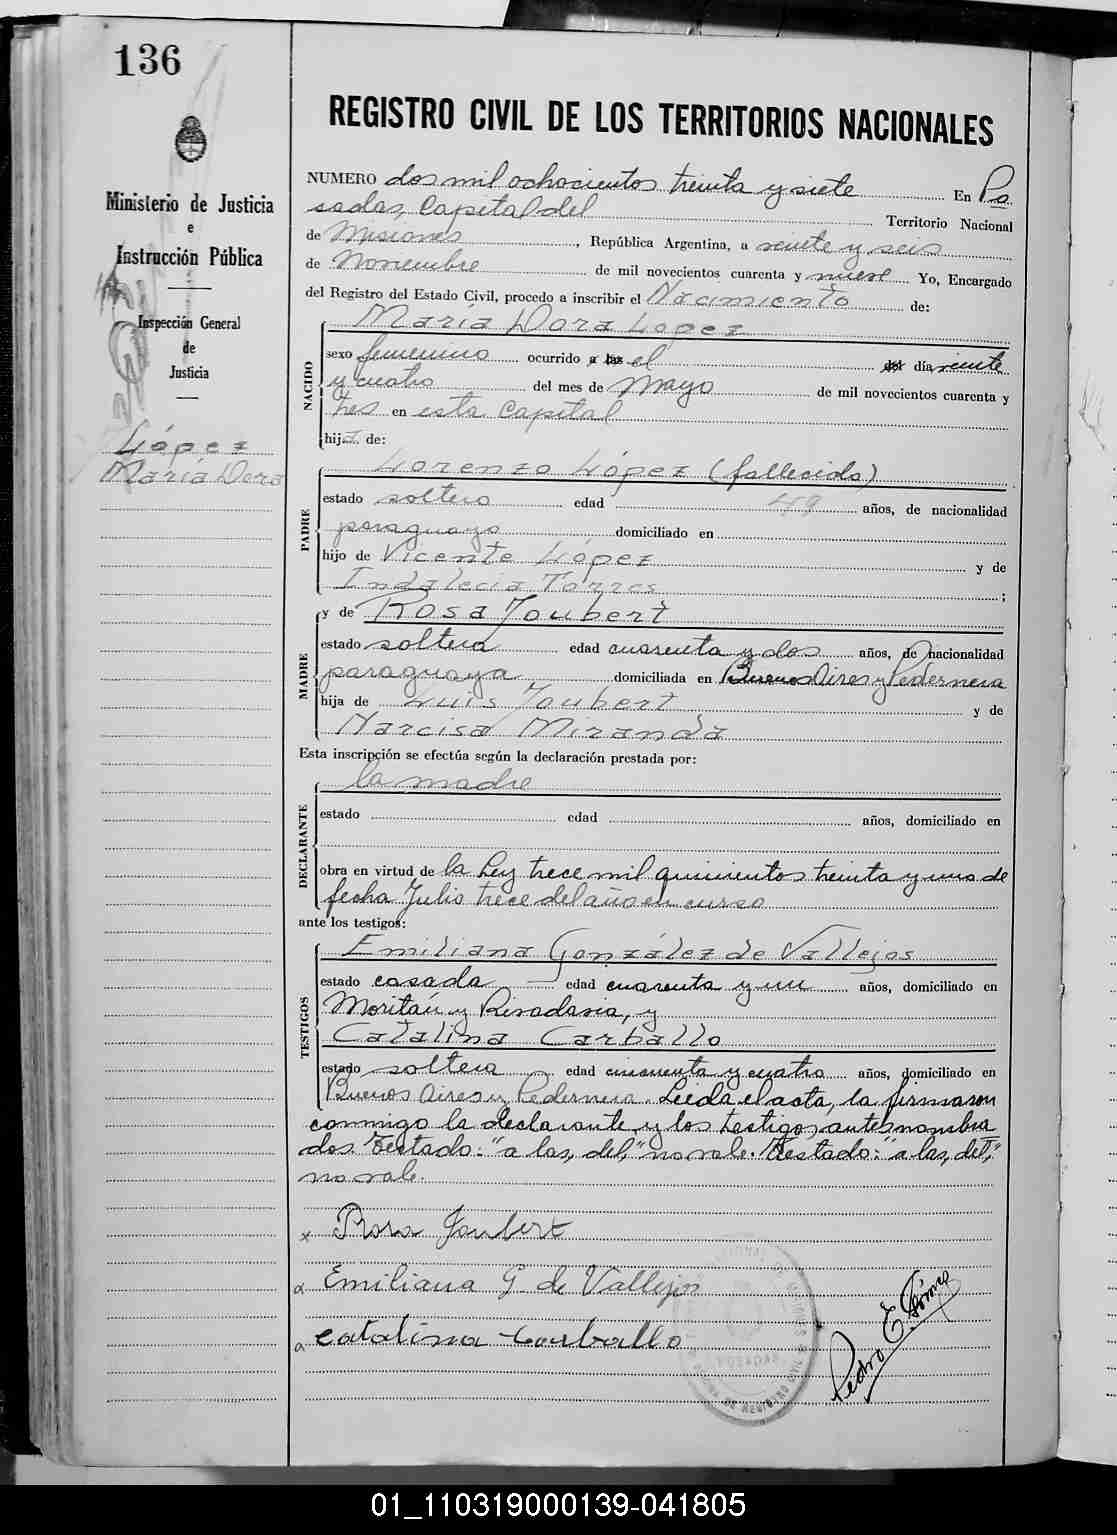 136
Ministerio de Justicia
e
Instrucción Pública
Inspección General
de
Justicia
López
María Dora
REGISTRO CIVIL DE LOS TERRITORIOS NACIONALES
NUMERO dos mil ochocientos treinta y siete En Po
sadas, Capital del Territorio Nacional
de Misiones, República Argentina, a veinte y seis
de Noviembre de mil novecientos cuarenta y nueve Yo, Encargado
del Registro del Estado Civil, procedo a inscribir el Nacimiento de:
NACIDO
María Dora Lopez
sexo femenino ocurrido a las el del día veinte
y cuatro del mes de Mayo de mil novecientos cuarenta y
tres en esta Capital
hija de:
PADRE
Lorenzo López (fallecido)
estado soltero edad 49 años, de nacionalidad
paraguayo domiciliado en
hijo de Vicente López y de
Indalecia Torres ;
MADRE
y de Rosa Joubert
estado soltera edad cuarenta y dos años, de nacionalidad
paraguaya domiciliada en Buenos Aires y Pedernera
hija de Luis Joubert y de
Narcisa Miranda
Esta inscripción se efectúa según la declaración prestada por:
DECLARANTE
la madre
estado edad años, domiciliado en
obra en virtud de la Ley trece mil quinientos treinta y uno de
fecha Julio trece del año en curso
ante los testigos:
TESTIGOS
Emiliana González de Vallejos
estado casada edad cuarenta y un años, domiciliado en
Moritán y Rivadavia, y
Catalina Carballo
estado soltera edad cincuenta y cuatro años, domiciliado en
Buenos Aires y Pedernera. Leida el acta, la firmaron
conmigo la declarante y los testigos antes nombra
dos. Testado: "a las, del," no vale. Testado: "a las, del,"
no vale.
x Rosa Joubert
a Emiliana G. de Vallejos
a Catalina Carballo
Pedro E. Gómez
01_110319000139-041805